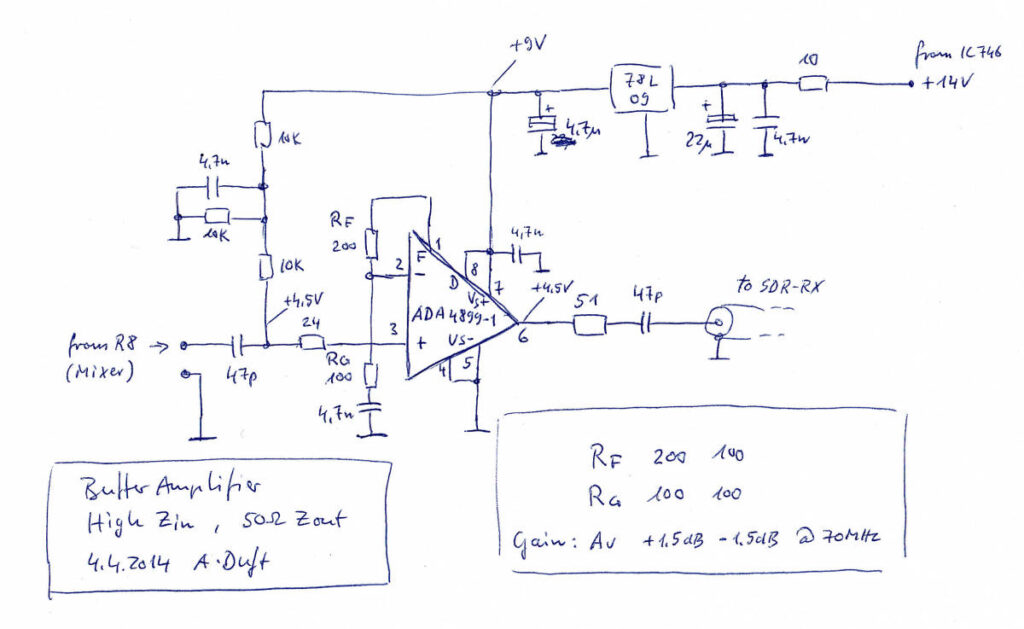 +9V
from IC746
+14V
10
78L
09
+
4,7µ
+
22µ
4,7n
10K
4,7n
10K
10K
RF
200
1
F
2
-
8
D
4,7n
VS+
7
ADA4899-1
+4,5V
3
+
VS-
6
4
5
+4,5V
24
from R8 →
(Mixer)
47p
RG
100
4,7n
51
47p
to SDR-RX
Buffer Amplifier
High Zin , 50Ω Zout
4.4.2014 A.Duft
RF 200 100
RG 100 100
Gain: Av +1.5dB -1.5dB @ 70MHz